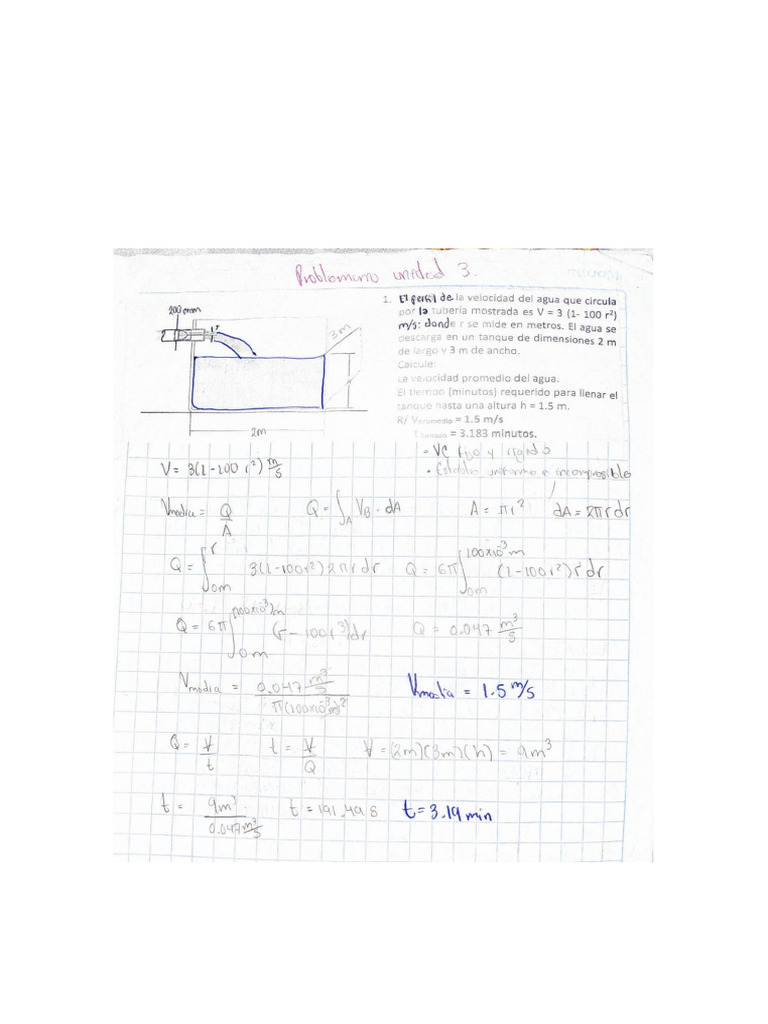 Problemario unidad 3.
1. El perfil de la velocidad del agua que circula
por la tubería mostrada es V = 3 (1- 100 r²)
m/s: donde r se mide en metros. El agua se
descarga en un tanque de dimensiones 2 m
de largo y 3 m de ancho.
Calcule:
La velocidad promedio del agua.
El tiempo (minutos) requerido para llenar el
tanque hasta una altura h = 1.5 m.
R/ V = 1.5 m/s
= 3.183 minutos.
200 mm
3 m
2m
• VC fijo y rígido
• Estable uniforme e incompresible
V = 3(1-100 r²) m/s
Vmedia = Q/A Q = ∫A VB · dA A = πr² dA = 2πrdr
Q = ∫0m^r 3(1-100r²)2πrdr Q = 6π ∫0m^100x10⁻³m (1-100r²)rdr
Q = 6π ∫0m^100x10⁻³m (r-100r³)dr Q = 0.047 m³/s
Vmedia = 0.047 m³/s / π(100x10⁻³m)² Vmedia = 1.5 m/s
Q = V/t t = V/Q V = (2m)(3m)(h) = 9m³
t = 9m³ / 0.047 m³/s t = 191.49 s t = 3.19 min